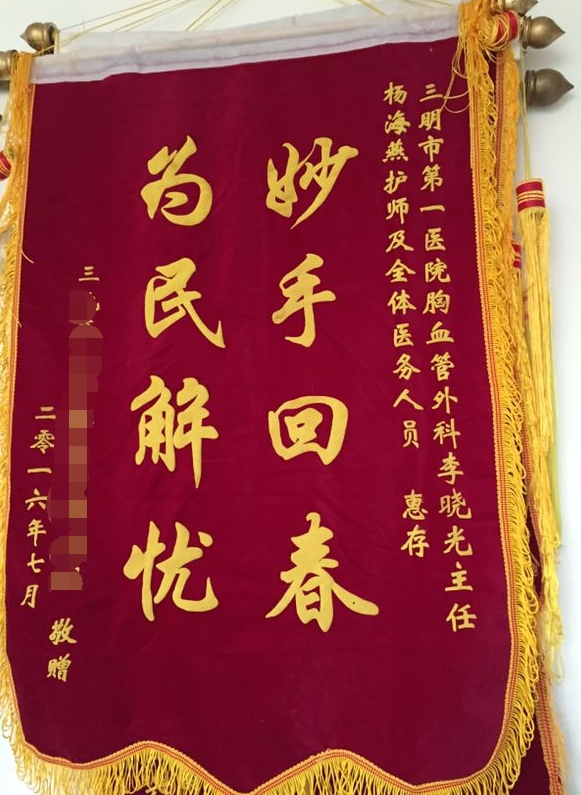 三明市第一医院胸血管外科李晓光主任
杨海燕护师及全体医务人员 惠存
妙手回春
为民解忧
三
二零一六年七月
敬赠